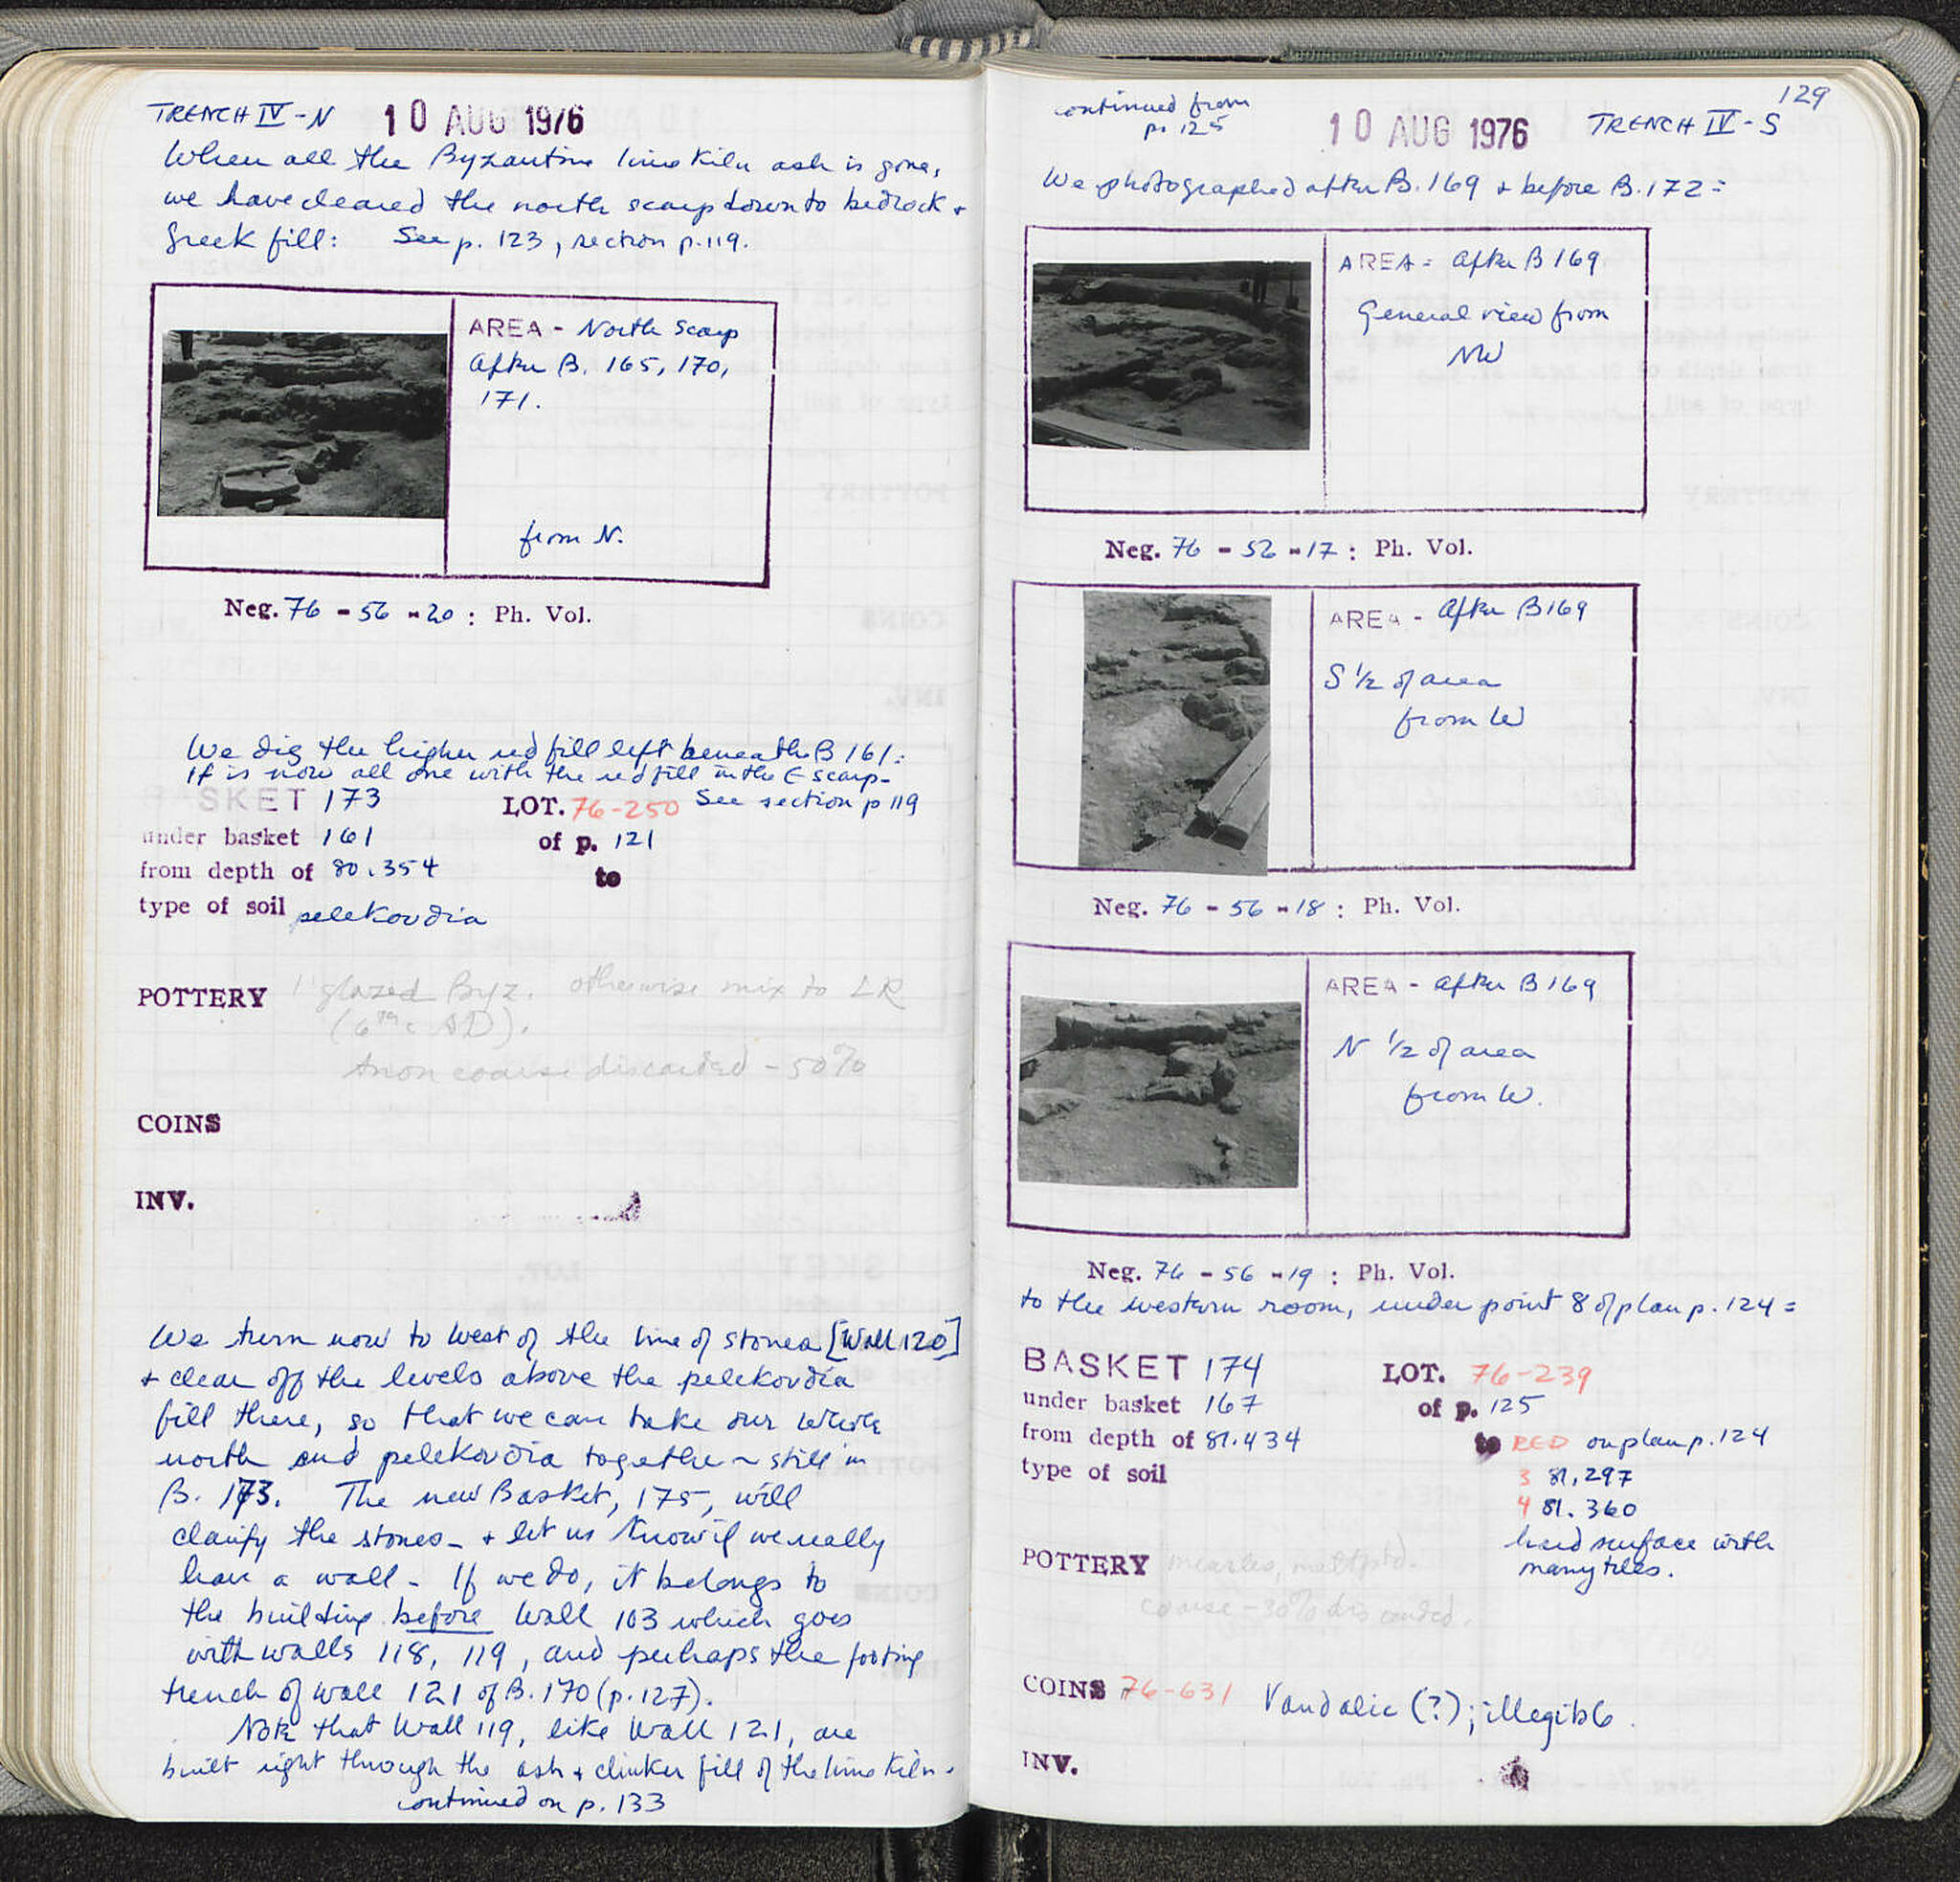 TRENCH IV-N 10 AUG 1976
When all the Byzantine lime kiln ash is gone,
we have cleared the north scarp down to bedrock +
Greek fill: See p. 123, section p. 119.
AREA - North scarp
After B. 165, 170,
171.
from N.
Neg. 76 - 56 - 20 : Ph. Vol.
We dig the higher red fill left beneath B 161.
It is now all one with the red fill in the E scarp-
See section p 119
BASKET 173 LOT. 76-250
under basket 161 of p. 121
from depth of 80.354 to
type of soil pelekoudia
POTTERY 1 glazed Byz. otherwise mix to LR
(6th c AD).
coarse discarded - 50%
COINS
INV.
We turn now to West of the line of stones [Wall 120]
+ clear off the levels above the pelekoudia
fill there, so that we can take our whole
north end pelekoudia together ~ still in
B. 173. The new Basket, 175, will
clarify the stones - + let us know if we really
have a wall - If we do, it belongs to
the building before Wall 103 which goes
with walls 118, 119, and perhaps the footing
trench of wall 121 of B. 170 (p. 127).
Note that Wall 119, like Wall 121, are
built right through the ash + clinker fill of the lime kiln.
continued on p. 133
129
continued from
p. 125
10 AUG 1976 TRENCH IV-S
We photographed after B. 169 + before B. 172 =
AREA = After B 169
General view from
NW
Neg. 76 - 52 - 17 : Ph. Vol.
AREA - After B 169
S 1/2 of area
from W
Neg. 76 - 56 - 18 : Ph. Vol.
AREA - After B 169
N 1/2 of area
from W.
Neg. 76 - 56 - 19 : Ph. Vol.
to the western room, under point 8 of plan p. 124 =
BASKET 174 LOT. 76-239
under basket 167 of p. 125
from depth of 81.434 to RED on plan p. 124
type of soil 3 81.297
4 81.360
hard surface with
many tiles.
POTTERY
coarse - 30% discarded.
COINS 76-631 Vandalic (?); illegible.
INV.